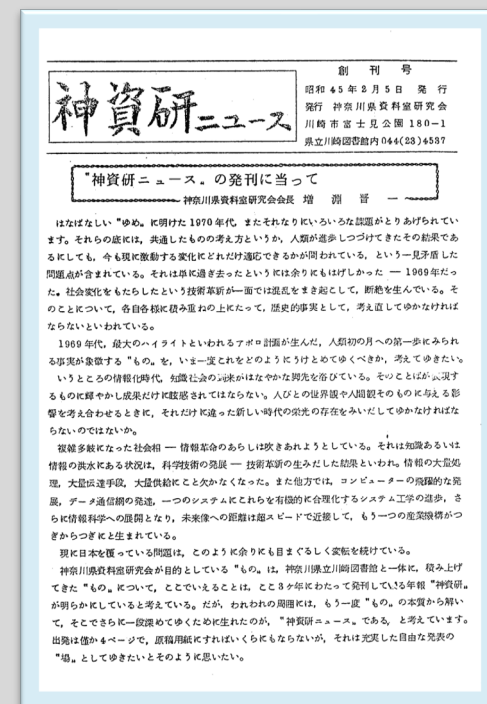 神資研ニュース
創刊号
昭和45年2月5日 発行
発行 神奈川県資料室研究会
川崎市富士見公園180-1
県立川崎図書館内044(23)4537
"神資研ニュース"の発刊に当って
神奈川県資料室研究会会長 増淵晋一
はなばなしい"ゆめ"に明けた1970年代、またそれなりにいろいろな課題がとりあげられてい
ます。それらの底には、共通したものの考え方というか、人類が進歩しつづけてきたその結果であ
るにしても、今も現に激動する変化にどれだけ適応できるかが問われている、という一見矛盾した
問題点が含まれている。それは単に過ぎ去ったというには余りにもはげしかった ― 1969年だっ
た。社会変化をもたらしたという技術革新が一面では混乱をまき起こして、断絶を生んでいる。そ
のことについて、各自各様に積み重ねの上にたって、歴史的事実として、考え直してゆかなければ
ならないといわれている。
1969年代、最大のハイライトといわれるアポロ計画が生んだ、人類初の月への第一歩にみられ
る事実が象徴する"もの"を、いま一度これをどのようにうけとめてゆくべきか、考えてゆきたい。
いうところの情報化時代、知識社会の到来がはなやかな脚光を浴びている。そのことばが表現す
るものに輝やかし成果だけに眩惑されてはならない。人びとの世界観や人間観そのものに与える影
響を考え合わせるときに、それだけに違った新しい時代の栄光の存在をみいだしてゆかなければな
らないのではないか。
複雑多岐になった社会相 ― 情報革命のあらしは吹きあれようとしている。それは知識あるいは
情報の洪水にある状況は、科学技術の発展 ― 技術革新の生みだした結果といわれ。情報の大量処
理、大量伝達手段、大量供給にこと欠かなくなった。また他方では、コンピューターの飛躍的な発
展、データ通信網の発達、一つのシステムにこれらを有機的に合理化するシステム工学の進歩、さ
らに情報科学への展開となり、未来像への距離は超スピードで近接して、もう一つの産業機構がつ
ぎからつぎにと生まれている。
現に日本を覆っている問題は、このように余りにも目まぐるしく変転を続けている。
神奈川県資料室研究会が目的としている"もの"は、神奈川県立川崎図書館と一体に、積み上げ
てきた"もの"について、ここでいえることは、ここ3ケ年にわたって発刊している年報"神資研"
が明らかにしていると考えている。だが、われわれの周囲には、もう一度"もの"の本質から解い
て、そこでさらに一段深めてゆくために生れたのが、"神資研ニュース"である、と考えています。
出発は僅か4ページで、原稿用紙にすればいくらにもならないが、それは充実した自由な発表の
"場"としてゆきたいとそのように思いたい。